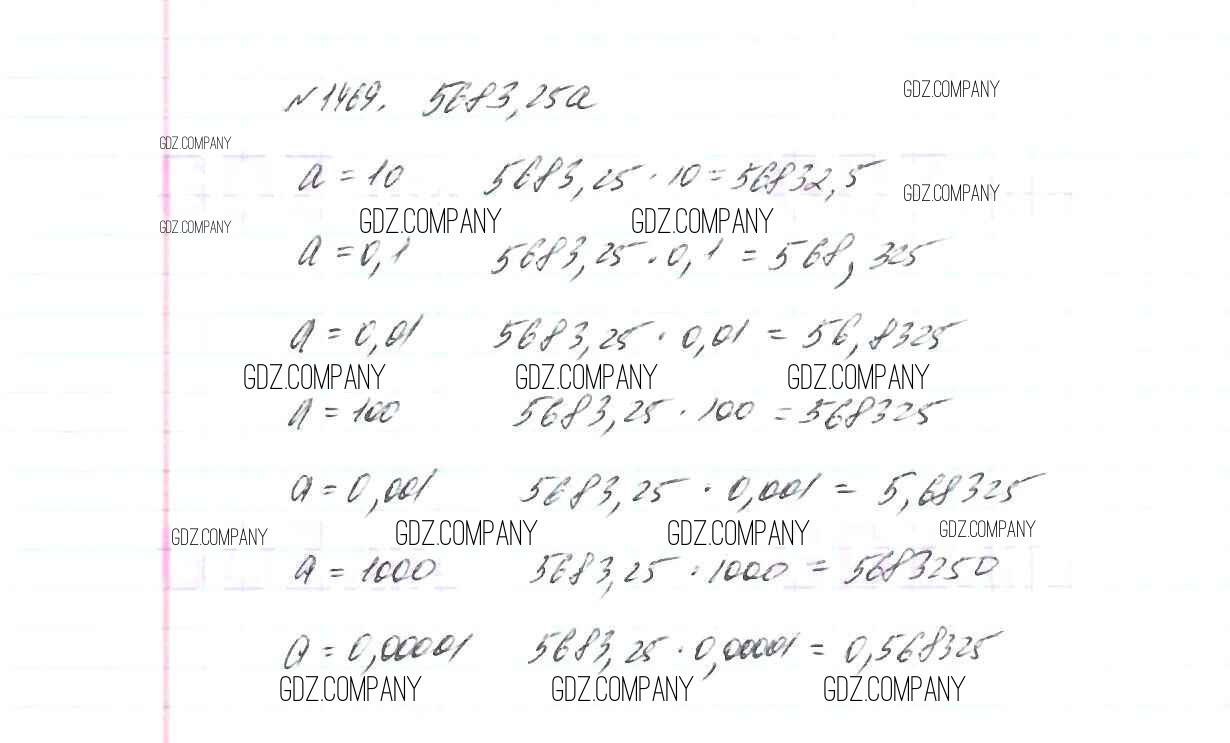 GDZ.COMPANY
№1469. 5683,25a
GDZ.COMPANY
a = 10 5683,25 · 10 = 56832,5
GDZ.COMPANY
GDZ.COMPANY GDZ.COMPANY GDZ.COMPANY
a = 0,1 5683,25 · 0,1 = 568,325
a = 0,01 5683,25 · 0,01 = 56,8325
GDZ.COMPANY GDZ.COMPANY GDZ.COMPANY
a = 100 5683,25 · 100 = 568325
a = 0,001 5683,25 · 0,001 = 5,68325
GDZ.COMPANY GDZ.COMPANY GDZ.COMPANY GDZ.COMPANY
a = 1000 5683,25 · 1000 = 5683250
a = 0,00001 5683,25 · 0,0001 = 0,568325
GDZ.COMPANY GDZ.COMPANY GDZ.COMPANY